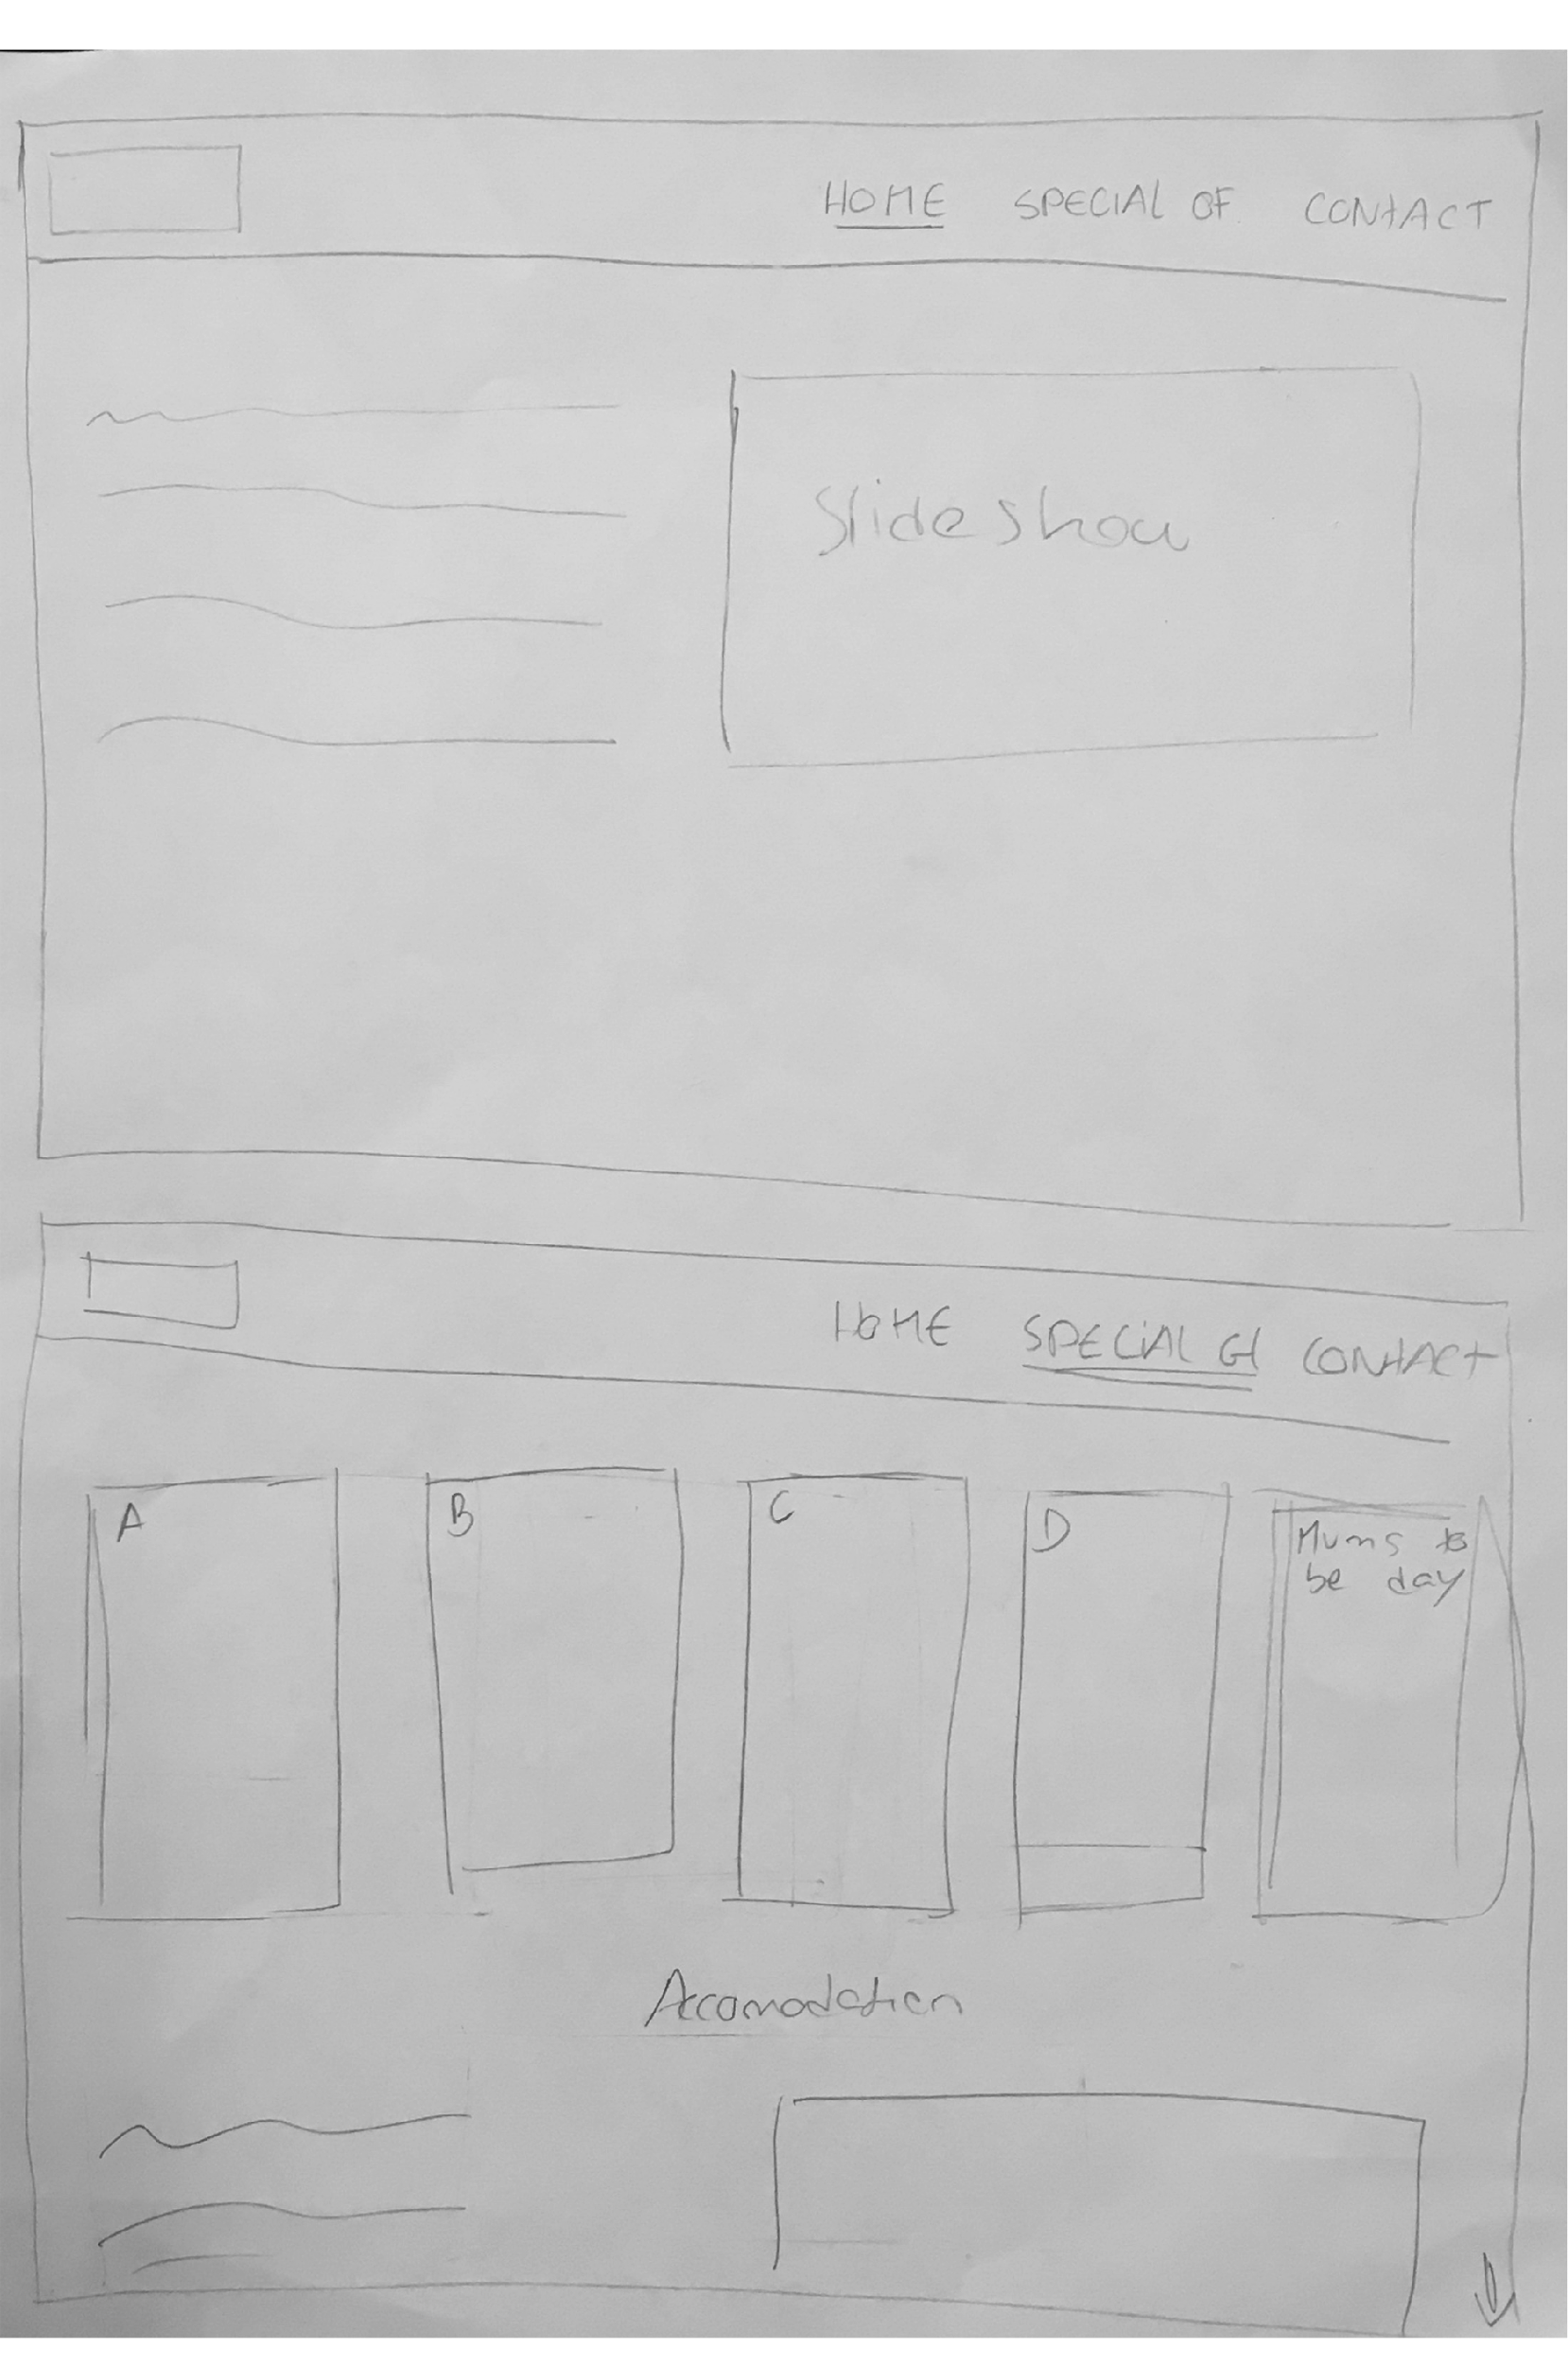 HOME SPECIAL OF. CONTACT
Slideshow
HOME SPECIAL CONTACT
A B C D Mums to
be day
Accomodation